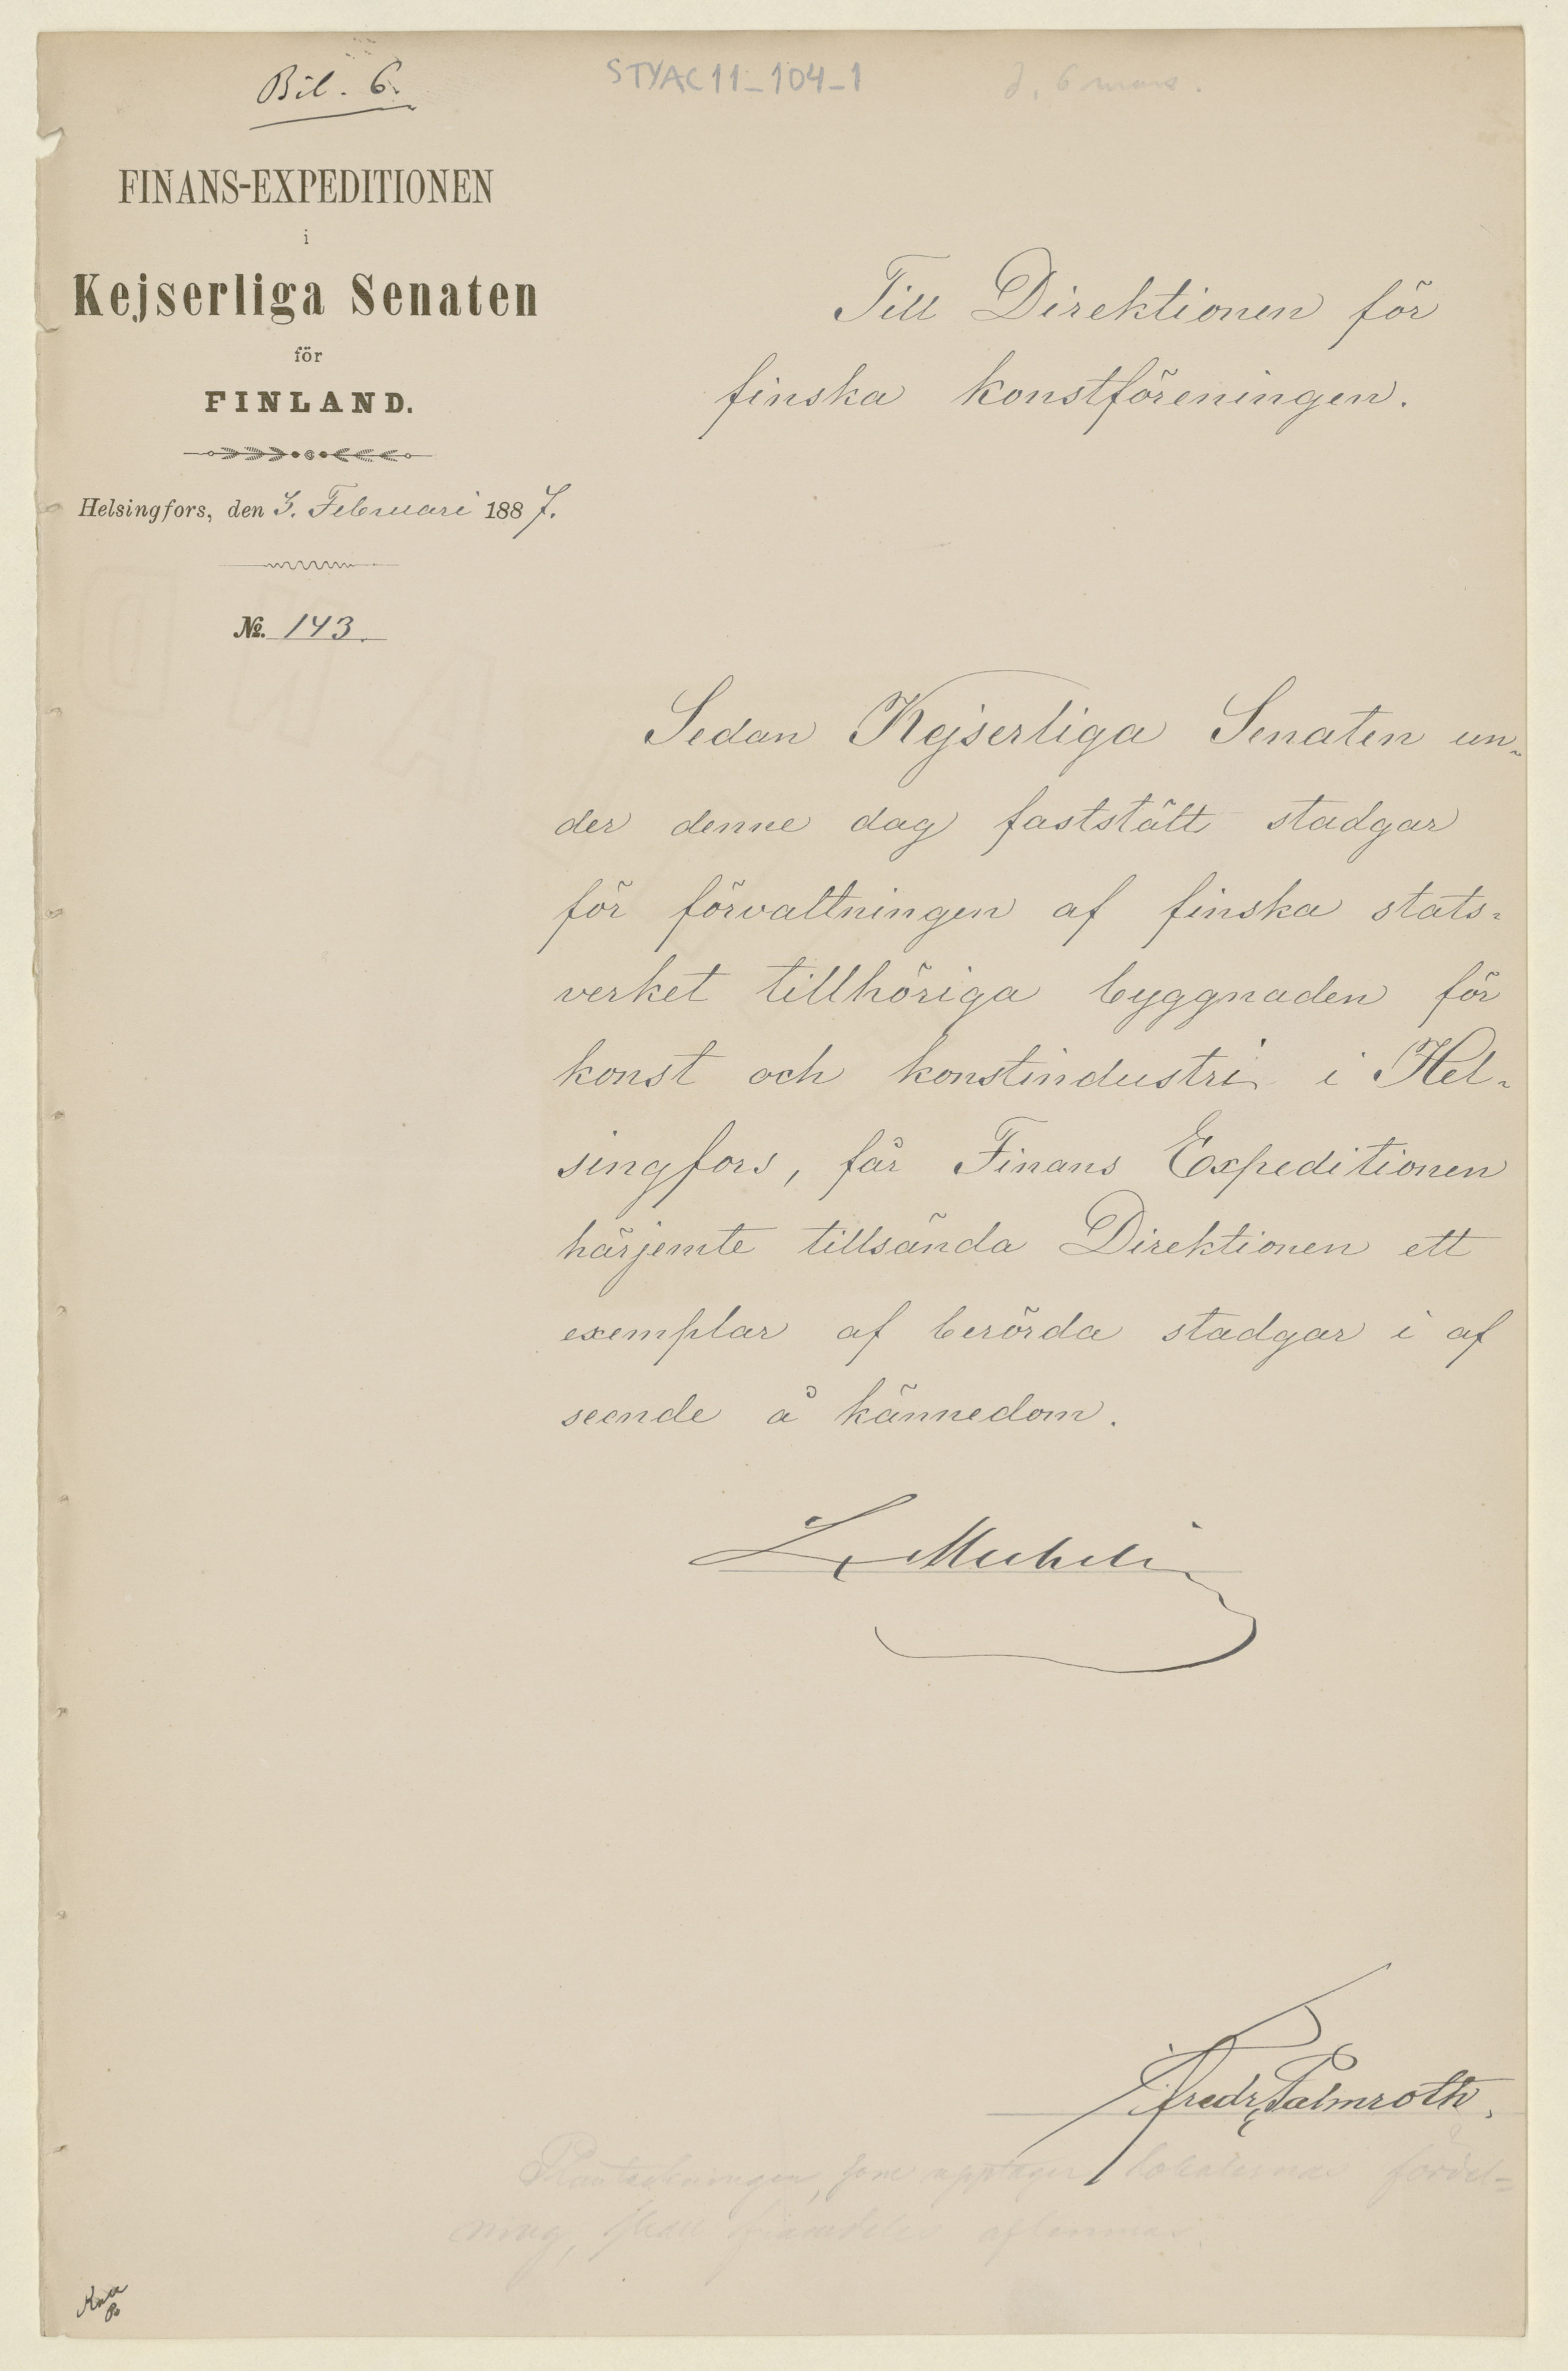 Bil. 6.
STYAC11_104_1
d. 6 mars.
FINANS-EXPEDITIONEN
i
Kejserliga Senaten
för
FINLAND.
Helsingfors, den 3. Februari 1887.
No. 143.
Till Direktionen för
finska konstföreningen.
Sedan Kejserliga Senaten un-
der denne dag faststält stadgar
för förvaltningen af finska stats-
verket tillhöriga byggnaden för
konst och konstindustri i Hel-
singfors, får Finans Expeditionen
härjemte tillsända Direktionen ett
exemplar af berörda stadgar i af
seende å kännedom.
L Mechelin
Fredr. Palmroth.
Planteckningen, som upptager lokalernas fördel-
ning, skall framdeles aflemnas.